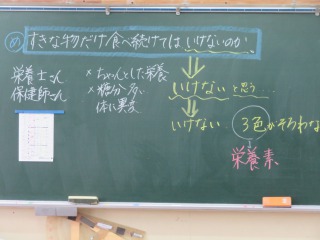 め すきな物だけ食べ続けてはいけないのか。
栄養士さん
保健師さん
×ちゃんとした栄養
×糖分多い
体に異変
いけないと思う…
いけない
3色がそろわな
栄養素